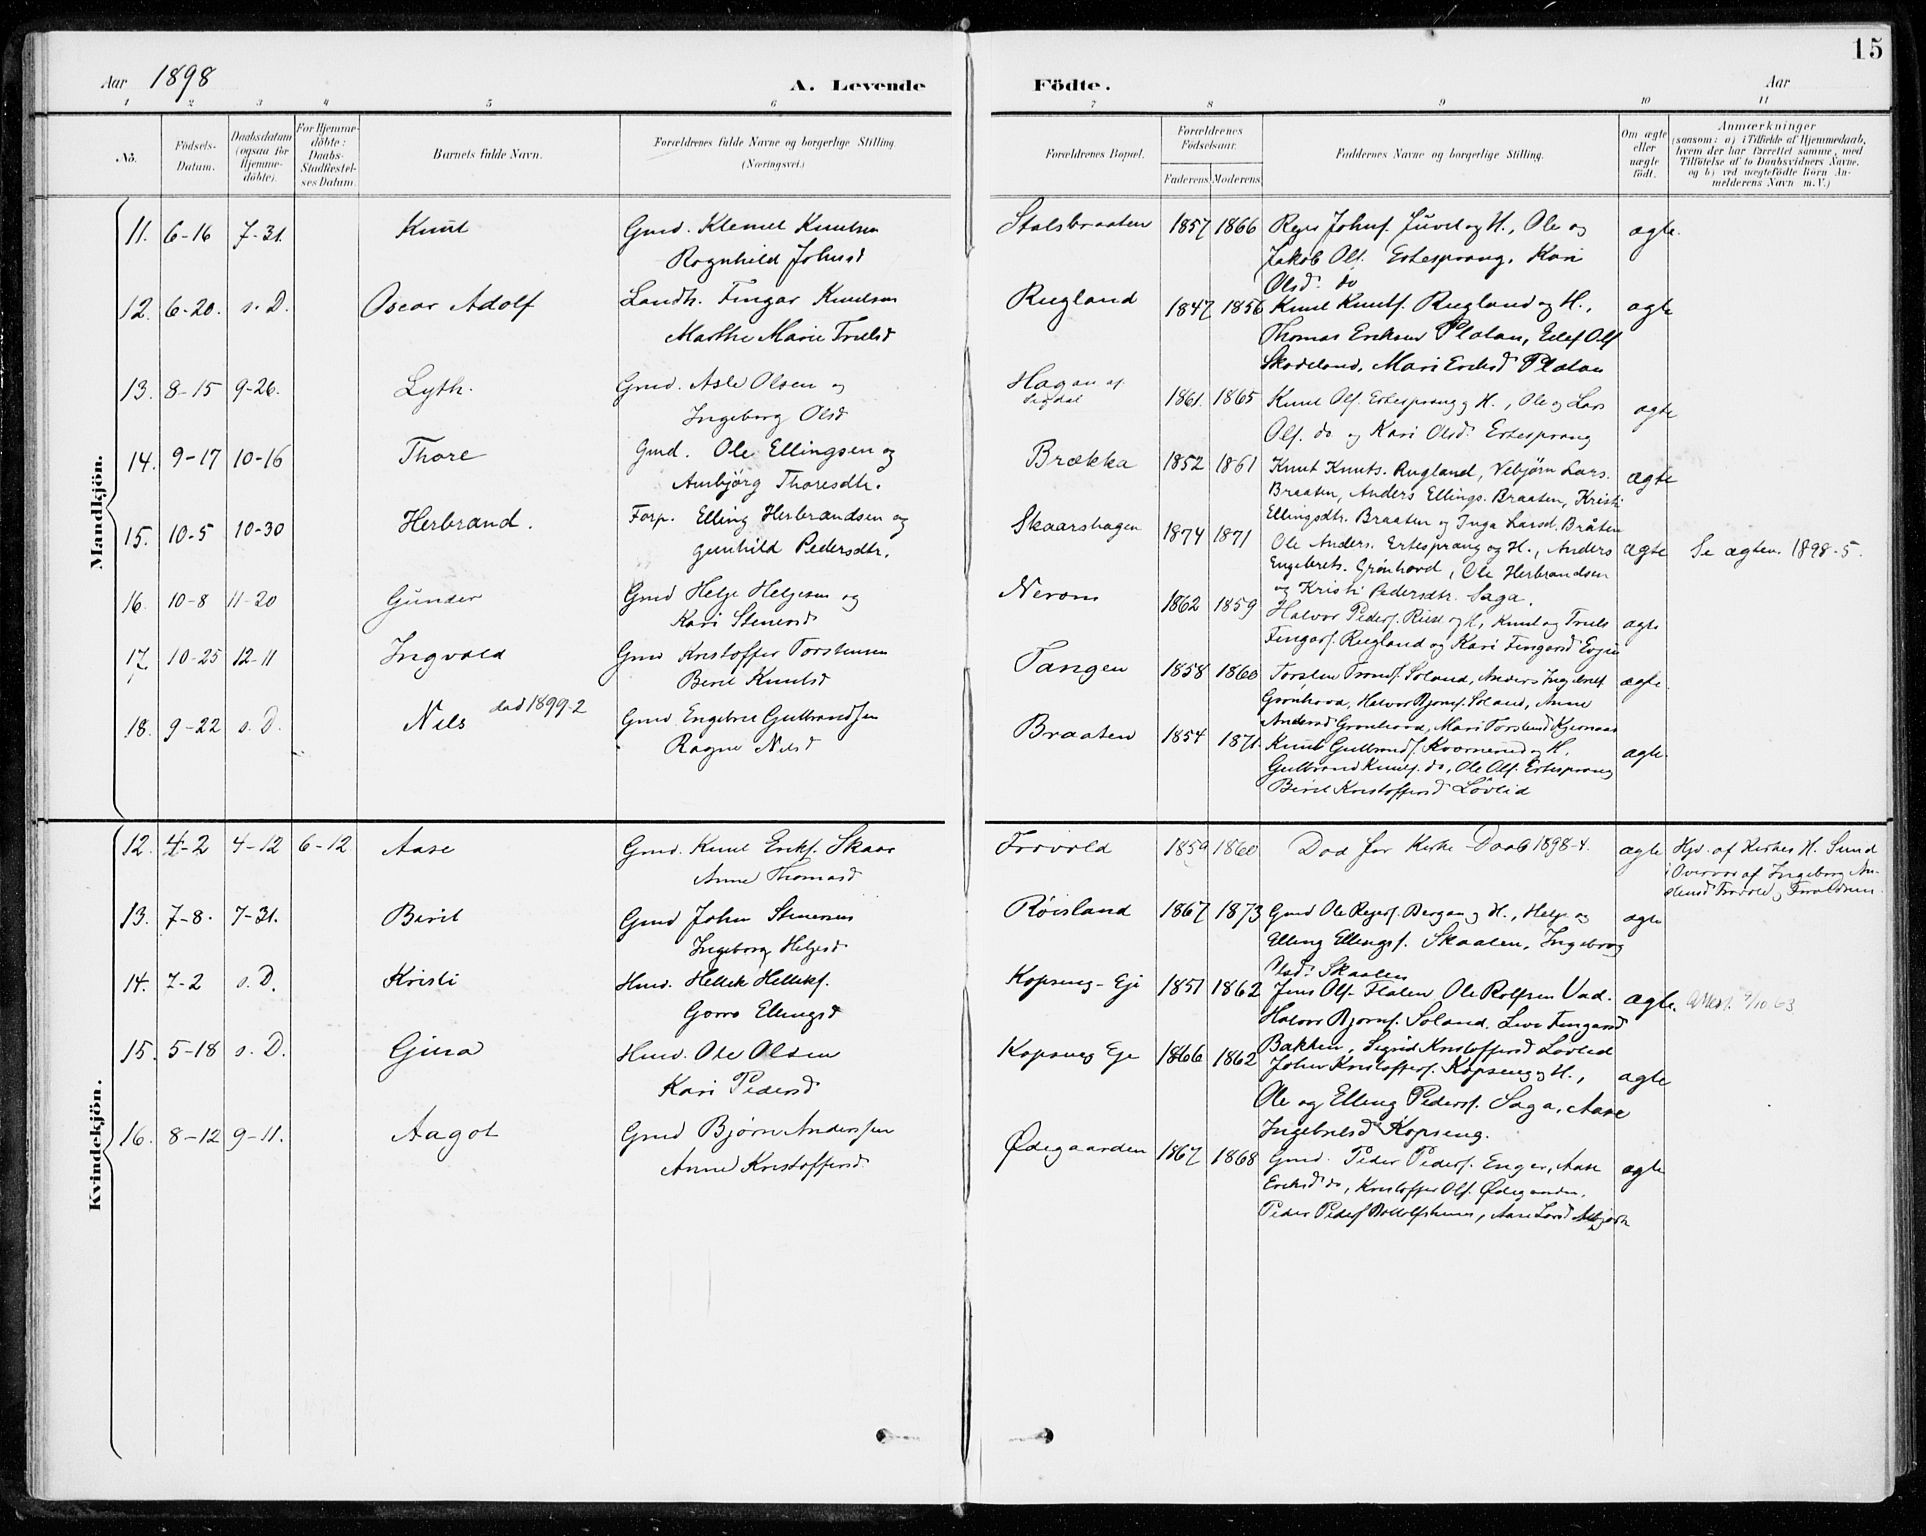 15
Aar 1898 A. Levende Födte. Aar
1 2 3 4 5 6 7 8 9 10 11
No. Födsels-Datum. Daabsdatum (ogsaa for Hjemmedöbte). For Hjemmedöbte: Daabs-Stadfestelses Datum. Barnets fulde Navn. Forældrenes fulde Navne og borgerlige Stilling. (Næringsvei.) Forældrenes Bopæl. Forældrenes Födselsaar. Faderens Moderens Faddernes Navne og borgerlige Stilling. Om ægte eller uægte födt. Anmærkninger (saasom: a) i Tilfælde af Hjemmedaab, hvem der har forrettet samme, med Tilföielse af to Daabsvidners Navne, og b) ved uægtefödte Börn Anmelderens Navn m.V.)
Mandkjön.
11. 6-16 7-31. Knut Gmd. Klemet Knutsen Stalsbraaten 1857 1866 Juvet og H., Ole og ægte.
Ragnhild Johnsd Jakob Ols. Ertesprang, Kari
Olsd. do
12. 6-20. s. D. Oscar Adolf Landh. Fingar Knudsen Rugland 1847 1856 Knut Knuts. Rugland og H., ægte
Marthe Marie Trulsd Thomas Eriksen Platan, Eilef Ols
Skodeland, Mari Eriksd Platan
13. 8-15 9-26. Lyth. Gmd. Asle Olsen og Hagan af Sigdal 1861. 1865 Knut Ols. Ertesprang og H., Ole og Lars ægte
Ingeborg Olsd Ols. do og Kari Olsd. Ertesprang
14. 9-17 10-16 Thore Gmd. Ole Ellingsen og Brækka 1852 1861 Knut Knuts. Rugland, Vebjørn Lars. ægte
Anbjörg Thoresdtr. Braaten, Anders Ellings. Braaten, Kristi
Ellingsdtr. Braaten og Inga Larsd. Bråten
15. 10-5 10-30 Herbrand. Forp. Elling Herbrandsen og Skaarshagen 1874 1871 Ole Anders. Ertesprang og H., Anders ægte Se ægtev. 1898-5.
gunhild Pedersdtr. Engebrets. Grønhovd, Ole Herbrandsen
og Kristi Pedersdtr. Saga.
16. 10-8 11-20 Gunder Gmd Helge Helgesen og Nerom 1862 1859 Halvor Peders. Rust og H, Knut og Truls ægte
Kari Stenersd Fingars. Rugland og Kari Fingarsd Evjen
17. 10-25 12-11 Ingvald Gmd Kristoffer Torstensen Tangen 1858 1860 Torsten Soland, Anders Ingebrets ægte.
Berit Knutsd Grønhovd, Halvor Bjørns. Soland, Anne
Andersd Grønhovd, Mari Torstensd
18. 9-22 s. D. Nils død 1899-2 Gmd. Engebret Gulbrandsen Braaten 1854 1871. Knut Gulbrands. Kvernerud og H. ægte
Ragne Nilsd Gulbrand Knuts. do, Ole Ols. Ertesprang
Berit Kristoffersd Løvlid
Kvindekjön.
12. 4-2 4-12 6-12 Aase Gmd. Knut Eriks. Skaar Frøvold 1859 1860 Død før Kirke-Daab 1898-4. ægte Hjd. af Kirkes. H. Sund
Anne Thomasd i Overvær af Ingeborg
Frøvold og Forældrene
13. 7-8. 7-31. Berit Gmd John Stenersen Røisland 1867 1873 Gmd Ole Bergan og H., Helge og ægte
Ingeborg Helgesd Elling Ellings. Skaalen, Ingeborg
Olsd. Skaalen
14. 7-2 s. D. Kristi Hmd. Hellek Helleks. Kopseng-Eje 1851 1862 Jens Ols. Flaten Ole Rolfsen Vad. ægte. Attest. 7/10 63
Gorro Ellingsd Halvor Bjørns. Soland, Live Fingarsd
Bakken, Sigrid Kristoffersd Løvlid
15. 5-18 s. D. Gina Hmd. Ole Olsen Kopseng Eje 1866 1862 John Kristoffers. Kopseng og H., ægte
Kari Pedersd Ole og Elling Peders. Saga, Aase
Ingebretsd Kopseng.
16. 8-12 9-11. Aagot Gmd Bjørn Anderssen Ødegaarden 1867 1868 Gmd. Peder Peders. Enger, Aase ægte
Anne Kristoffersd. Eriksd do, Kristoffer Ols. Ødegaarden,
Peder Peders Aase Larsd